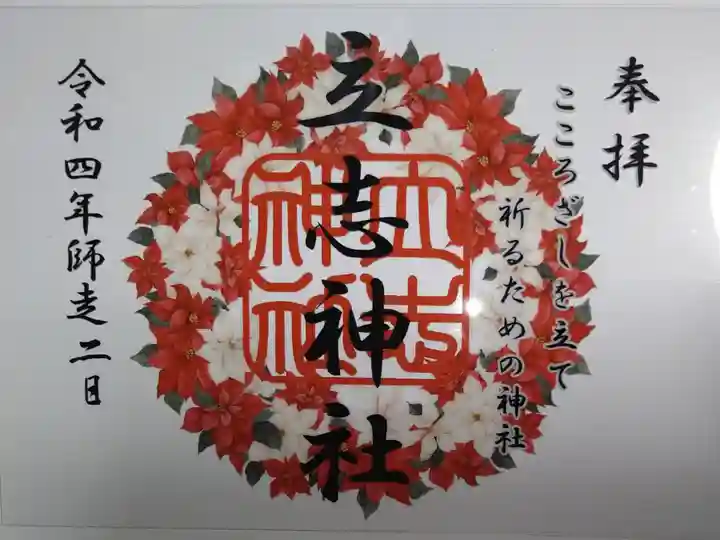 奉拝
こころざしを立て
祈るための神社
立志神社
立志神社
令和四年師走二日